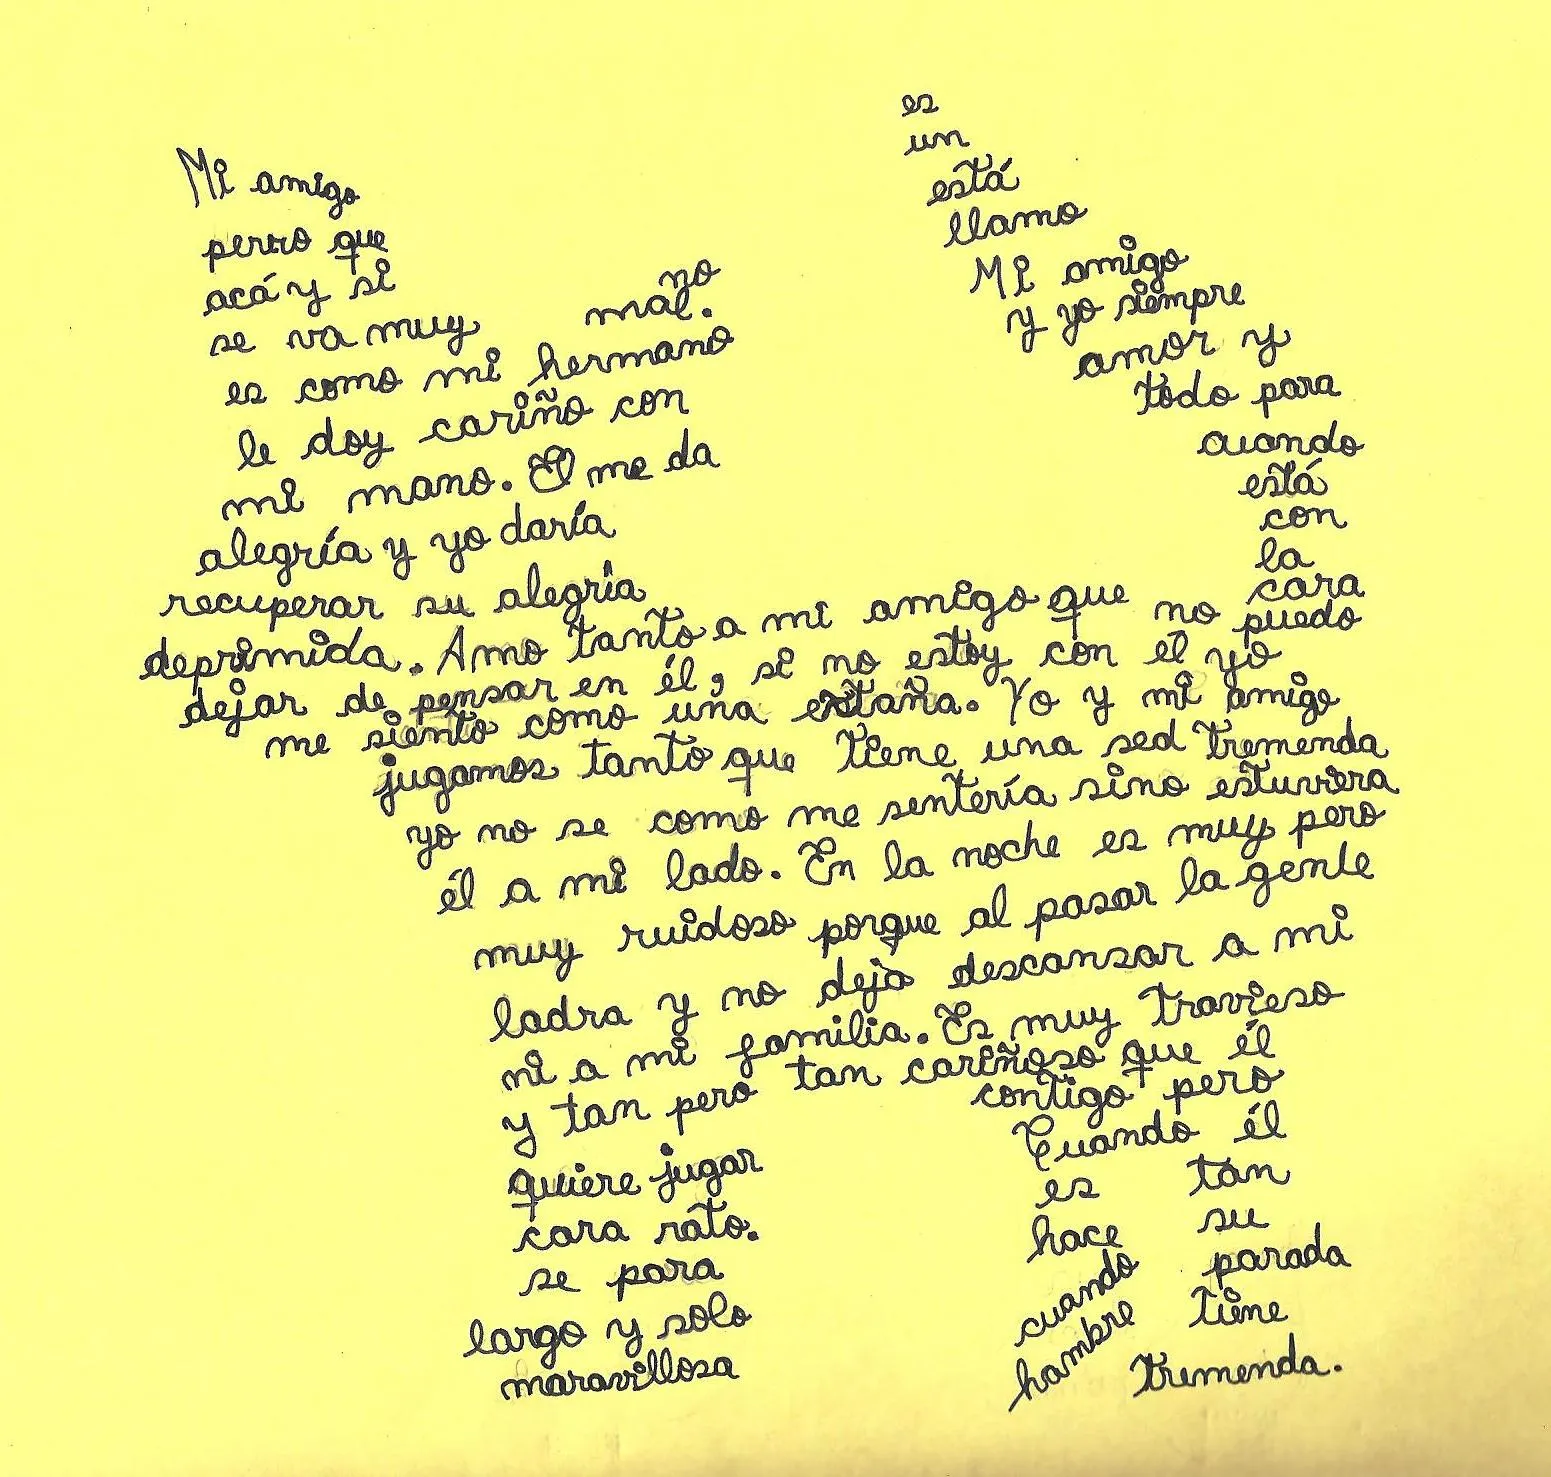 Mi amigo es
un
perro que está
acá y si no llamo
se va muy mal. Mi amigo
es como mi hermano y yo siempre
le doy cariño con amor y
mi mano. El me da todo para
alegría y yo daría cuando
recuperar su alegría está
con
la
cara
deprimida. Amo tanto a mi amigo que no puedo
dejar de pensar en él, si no estoy con él yo
me siento como una extaña. Yo y mi amigo
jugamos tanto que tiene una sed tremenda
yo no se como me sentería sino estuviera
él a mi lado. En la noche es muy pero
muy ruidoso porque al pasar la gente
ladra y no deja descansar a mi
ni a mi familia. Es muy travieso
y tan pero tan cariñoso que él
quiere jugar contigo pero
cara rato. Cuando él
se para es tan
largo y solo hace su
maravillosa parada
cuando tiene
hambre tremenda.